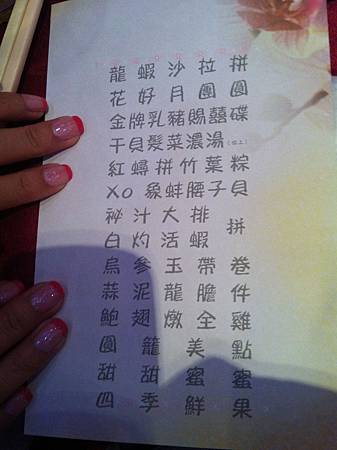 龍蝦沙拉拼
花好月團圓
金牌乳豬賜囍碟
干貝髮菜濃湯(位上)
紅蟳拼竹葉粽
XO象蚌腰子貝
祕汁大排
拼
白灼活蝦
烏參玉帶卷
蒜泥龍膽件
鮑翅燉全雞
圓籠美點
甜甜蜜蜜
四季鮮果